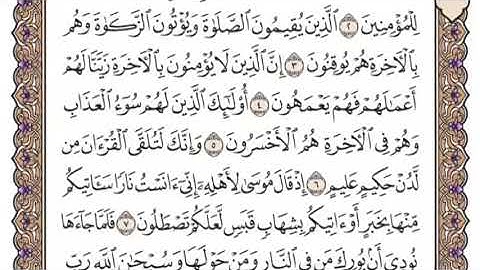 لِلْمُؤْمِنِينَ ٢ ٱلَّذِينَ يُقِيمُونَ ٱلصَّلَوٰةَ وَيُؤْتُونَ ٱلزَّكَوٰةَ وَهُم
بِٱلْءَاخِرَةِ هُمْ يُوقِنُونَ ٣ إِنَّ ٱلَّذِينَ لَا يُؤْمِنُونَ بِٱلْءَاخِرَةِ زَيَّنَّا لَهُمْ
أَعْمَٰلَهُمْ فَهُمْ يَعْمَهُونَ ٤ أُو۟لَٰٓئِكَ ٱلَّذِينَ لَهُمْ سُوٓءُ ٱلْعَذَابِ
وَهُمْ فِى ٱلْءَاخِرَةِ هُمُ ٱلْأَخْسَرُونَ ٥ وَإِنَّكَ لَتُلَقَّى ٱلْقُرْءَانَ مِن
لَّدُنْ حَكِيمٍ عَلِيمٍ ٦ إِذْ قَالَ مُوسَىٰ لِأَهْلِهِۦٓ إِنِّىٓ ءَانَسْتُ نَارًا سَـَٔاتِيكُم
مِّنْهَا بِخَبَرٍ أَوْ ءَاتِيكُم بِشِهَابٍ قَبَسٍ لَّعَلَّكُمْ تَصْطَلُونَ ٧ فَلَمَّا جَآءَهَا
نُودِىَ أَنۢ بُورِكَ مَن فِى ٱلنَّارِ وَمَنْ حَوْلَهَا وَسُبْحَٰنَ ٱللَّهِ رَبِّ